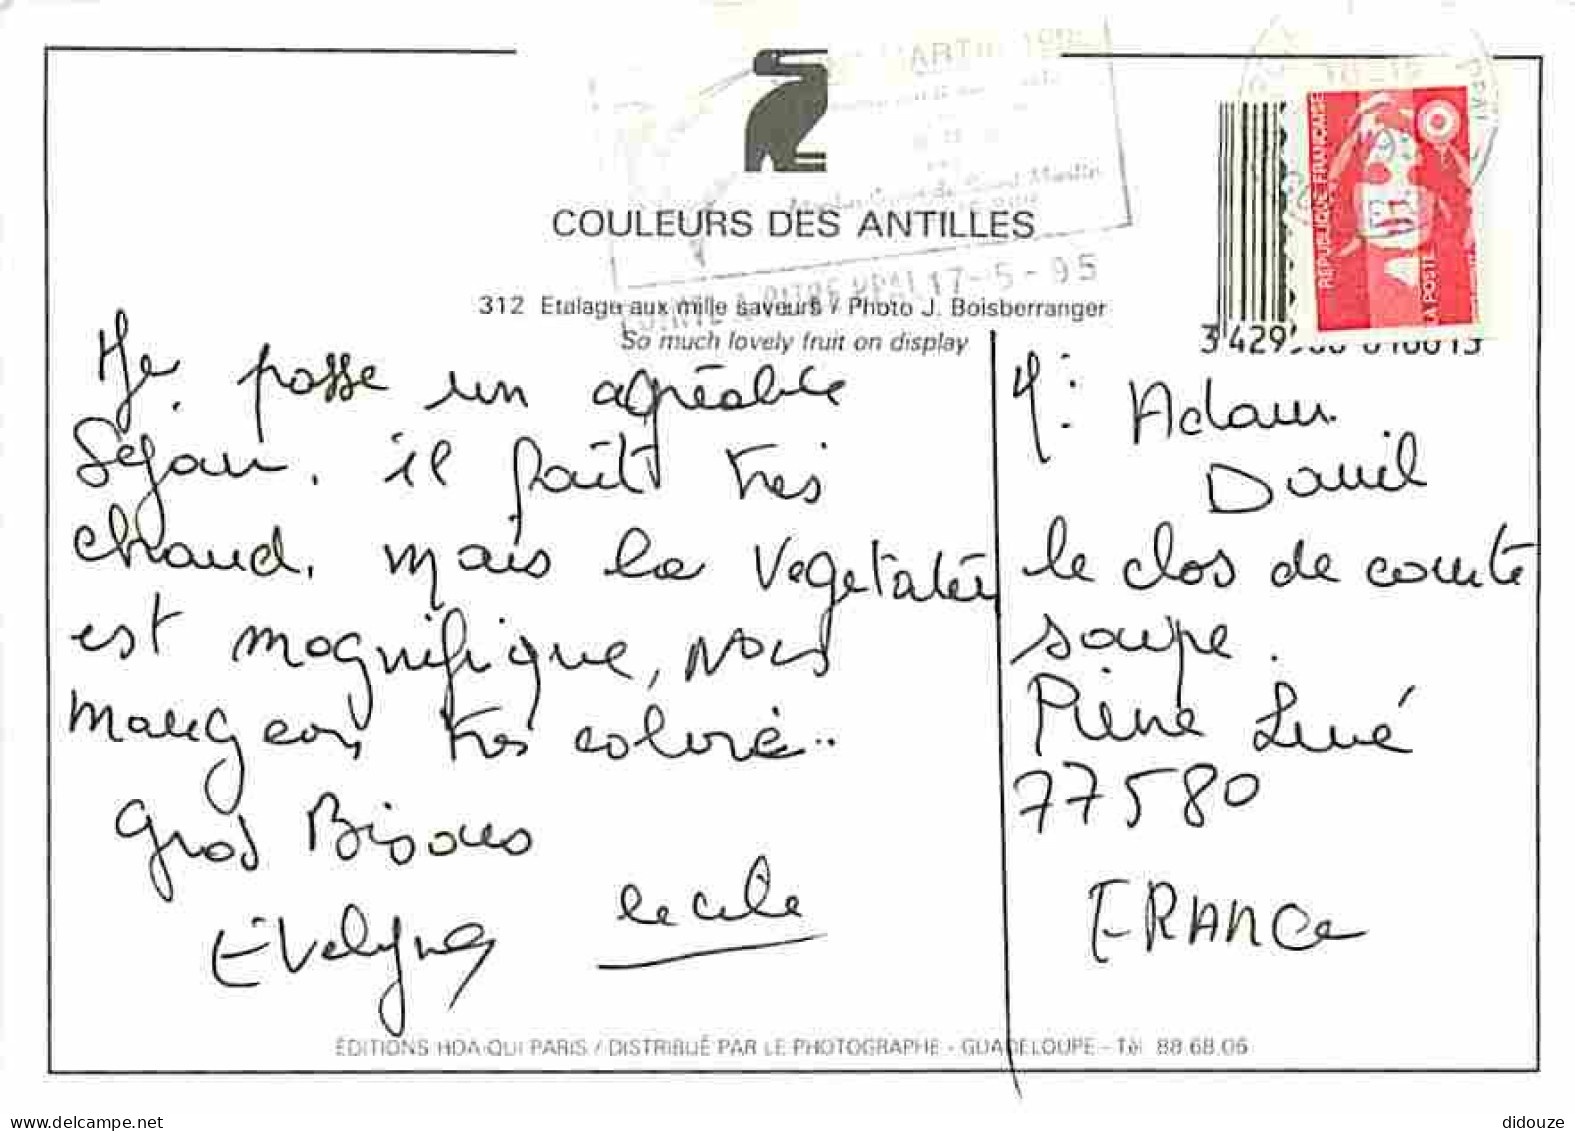 COULEURS DES ANTILLES
POINTE A PITRE PPAL 17-5-95
312 Etalage aux mille saveurs / Photo J. Boisberranger
So much lovely fruit on display
RÉPUBLIQUE FRANÇAISE
LA POSTE
3 429
Je passe un agréable
Séjour. il fait très
chaud. mais la Vegetation
est magnifique, Nous
mangeons très coloré..
Gros Bisous
Evelyne
Cecile
M: Adam
Daniel
le clos de comte
soupe.
Pierre Levée
77580
FRANCe
ÉDITIONS HOA-QUI PARIS / DISTRIBUÉ PAR LE PHOTOGRAPHE - GUADELOUPE - Tél 88.68.06
delcampe.net
didouze